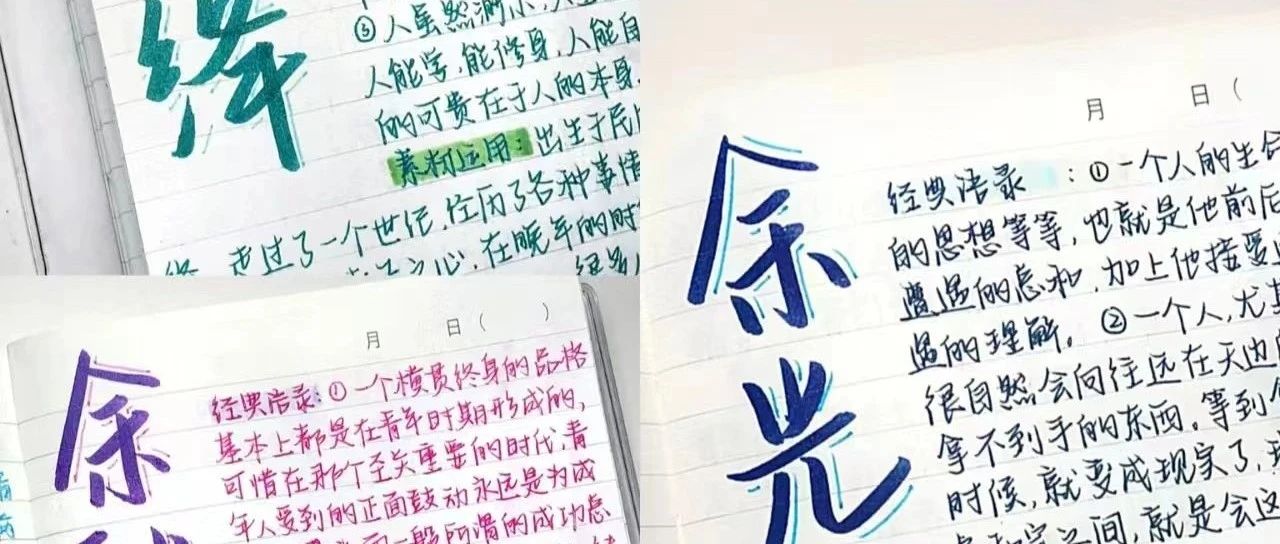 绛
③人虽然渺小,人
人能学,能修身,人能自
的可贵在于人的本身,
素材运用:出生于民
走过了一个世纪,经历了各种事情
之心,在晚年的时
月 日( )
余
经典语录:①一个横贯终身的品格
基本上都是在青年时期形成的,
可惜在那个至关重要的时代,青
年人受到的正面鼓动永远是为成
一般所谓的成功总
月 日(
余光
经典语录:①一个人的生命
的思想等等,也就是他前后
遭遇的总和,加上他接受
遇的理解。②一个人,尤其
很自然会向往远在天边
拿不到手的东西。等到
时候,就变成现实了,
之间,就是会这